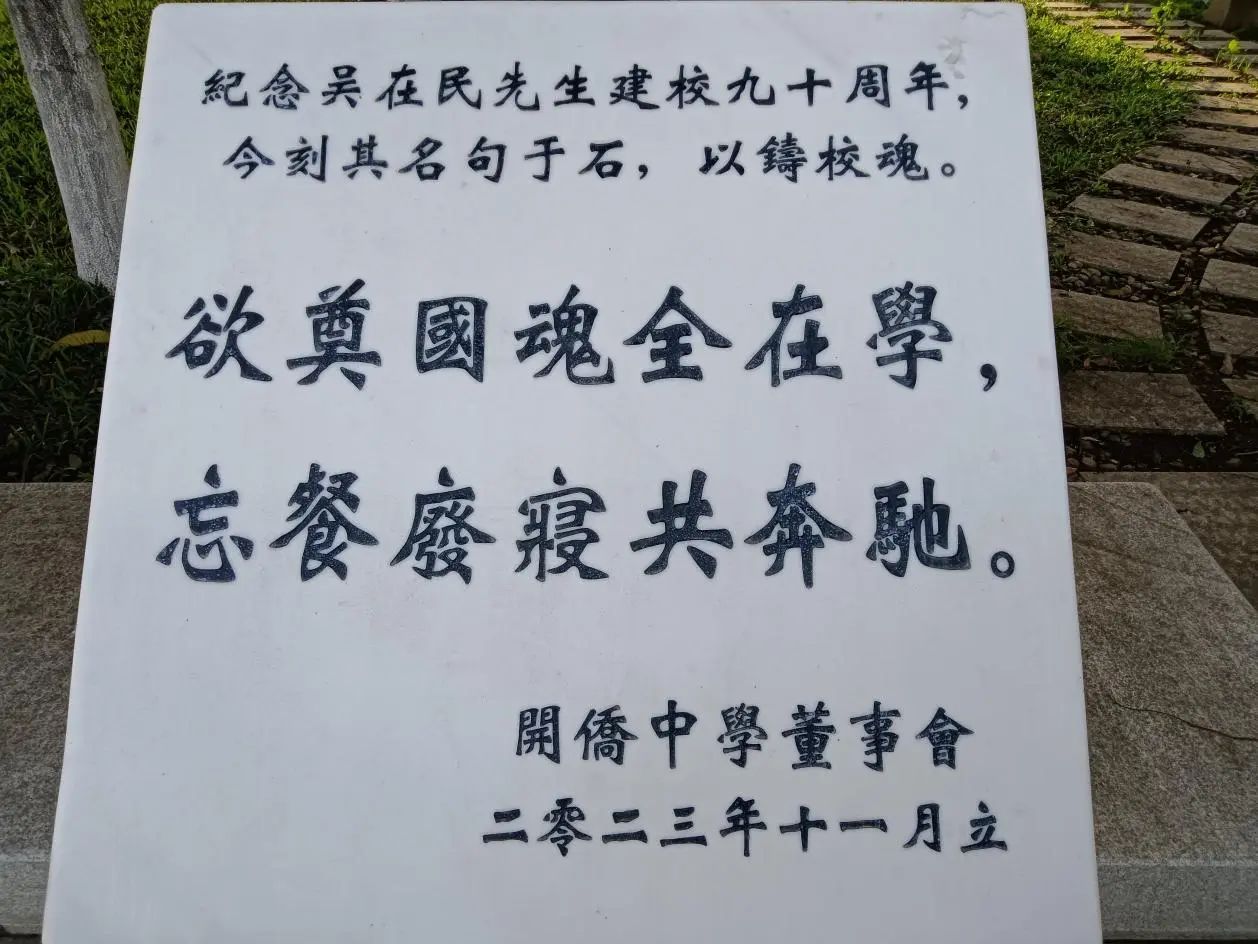 紀念吴在民先生建校九十周年，
今刻其名句于石，以鑄校魂。
欲奠國魂全在學，
忘餐廢寢共奔馳。
開僑中學董事會
二零二三年十一月立